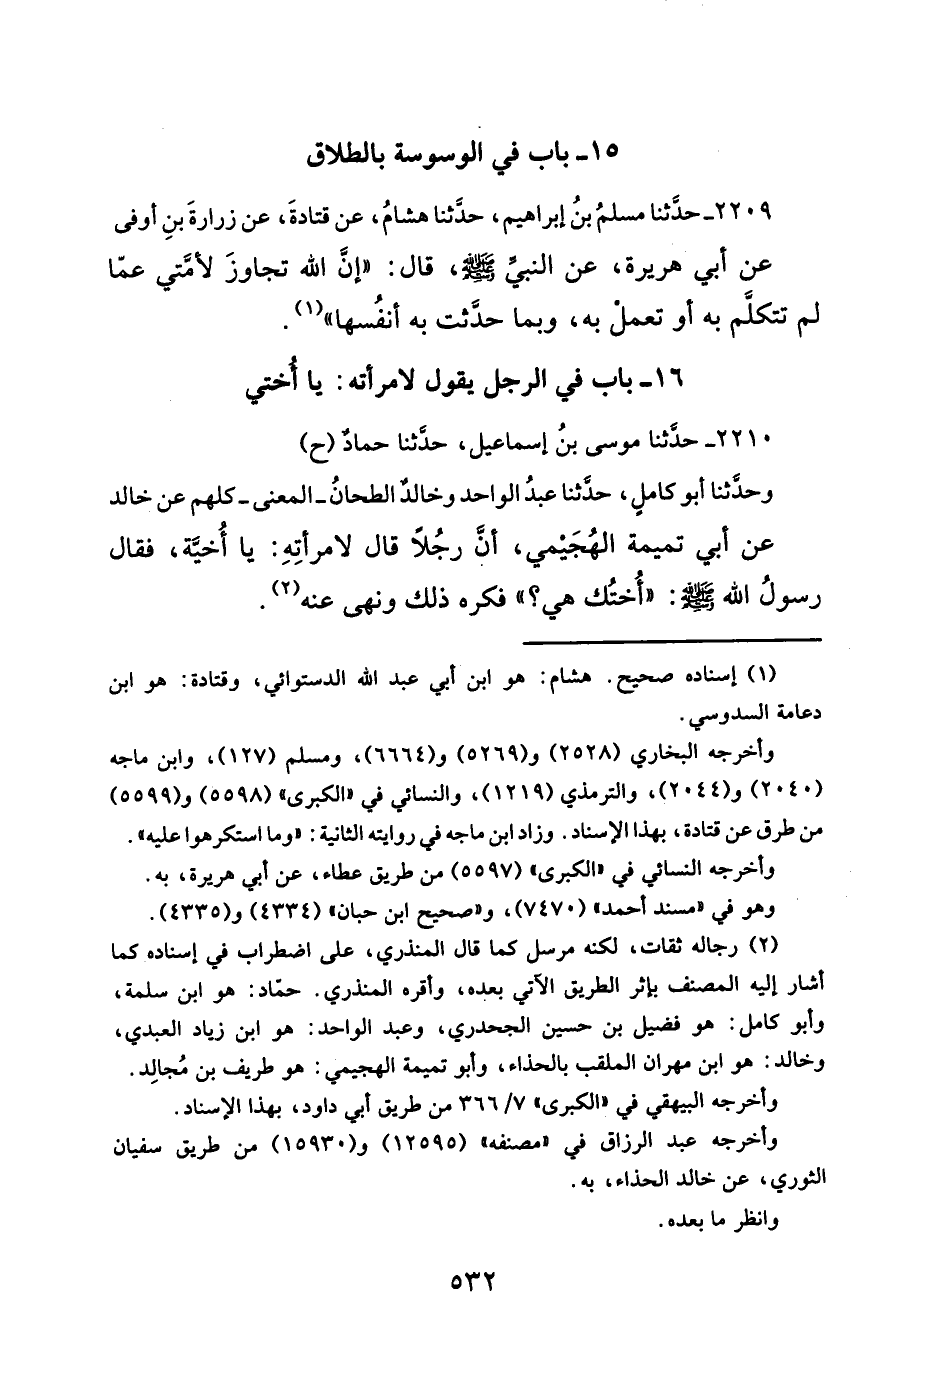 ١٥ـ باب في الوسوسة بالطلاق
٢٢٠٩ـ حدَّثنا مسلمُ بنُ إبراهيم، حدَّثنا هشامُ، عن قتادةَ، عن زرارةَ بنِ أوفى
عن أبي هريرة، عن النبيِّ ﷺ، قال: «إنَّ الله تجاوزَ لأمَّتي عمّا
لم تتكلَّم به أو تعملْ به، وبما حدَّثت به أنفُسها»(١).
١٦ـ باب في الرجل يقول لامرأته: يا أُختي
٢٢١٠ـ حدَّثنا موسى بنُ إسماعيل، حدَّثنا حمادٌ (ح)
وحدَّثنا أبو كاملٍ، حدَّثنا عبدُ الواحد وخالدٌ الطحانُ ـ المعنى ـ كلهم عن خالد
عن أبي تميمة الهُجَيْمي، أنَّ رجُلاً قال لامرأتِهِ: يا أُخيَّة، فقال
رسولُ الله ﷺ: «أُختُك هي؟» فكره ذلك ونهى عنه(٢).
(١) إسناده صحيح. هشام: هو ابن أبي عبد الله الدستوائي، وقتادة: هو ابن
دعامة السدوسي.
وأخرجه البخاري (٢٥٢٨) و(٥٢٦٩) و(٦٦٦٤)، ومسلم (١٢٧)، وابن ماجه
(٢٠٤٠) و(٢٠٤٤)، والترمذي (١٢١٩)، والنسائي في «الكبرى» (٥٥٩٨) و(٥٥٩٩)
من طرق عن قتادة، بهذا الإسناد. وزاد ابن ماجه في روايته الثانية: «وما استكرهوا عليه».
وأخرجه النسائي في «الكبرى» (٥٥٩٧) من طريق عطاء، عن أبي هريرة، به.
وهو في «مسند أحمد» (٧٤٧٠)، و«صحيح ابن حبان» (٤٣٣٤) و(٤٣٣٥).
(٢) رجاله ثقات، لكنه مرسل كما قال المنذري، على اضطراب في إسناده كما
أشار إليه المصنف بإثر الطريق الآتي بعده، وأقره المنذري. حمّاد: هو ابن سلمة،
وأبو كامل: هو فضيل بن حسين الجحدري، وعبد الواحد: هو ابن زياد العبدي،
وخالد: هو ابن مهران الملقب بالحذاء، وأبو تميمة الهجيمي: هو طريف بن مُجالِد.
وأخرجه البيهقي في «الكبرى» ٧/ ٣٦٦ من طريق أبي داود، بهذا الإسناد.
وأخرجه عبد الرزاق في «مصنفه» (١٢٥٩٥) و(١٥٩٣٠) من طريق سفيان
الثوري، عن خالد الحذاء، به.
وانظر ما بعده.
٥٣٢